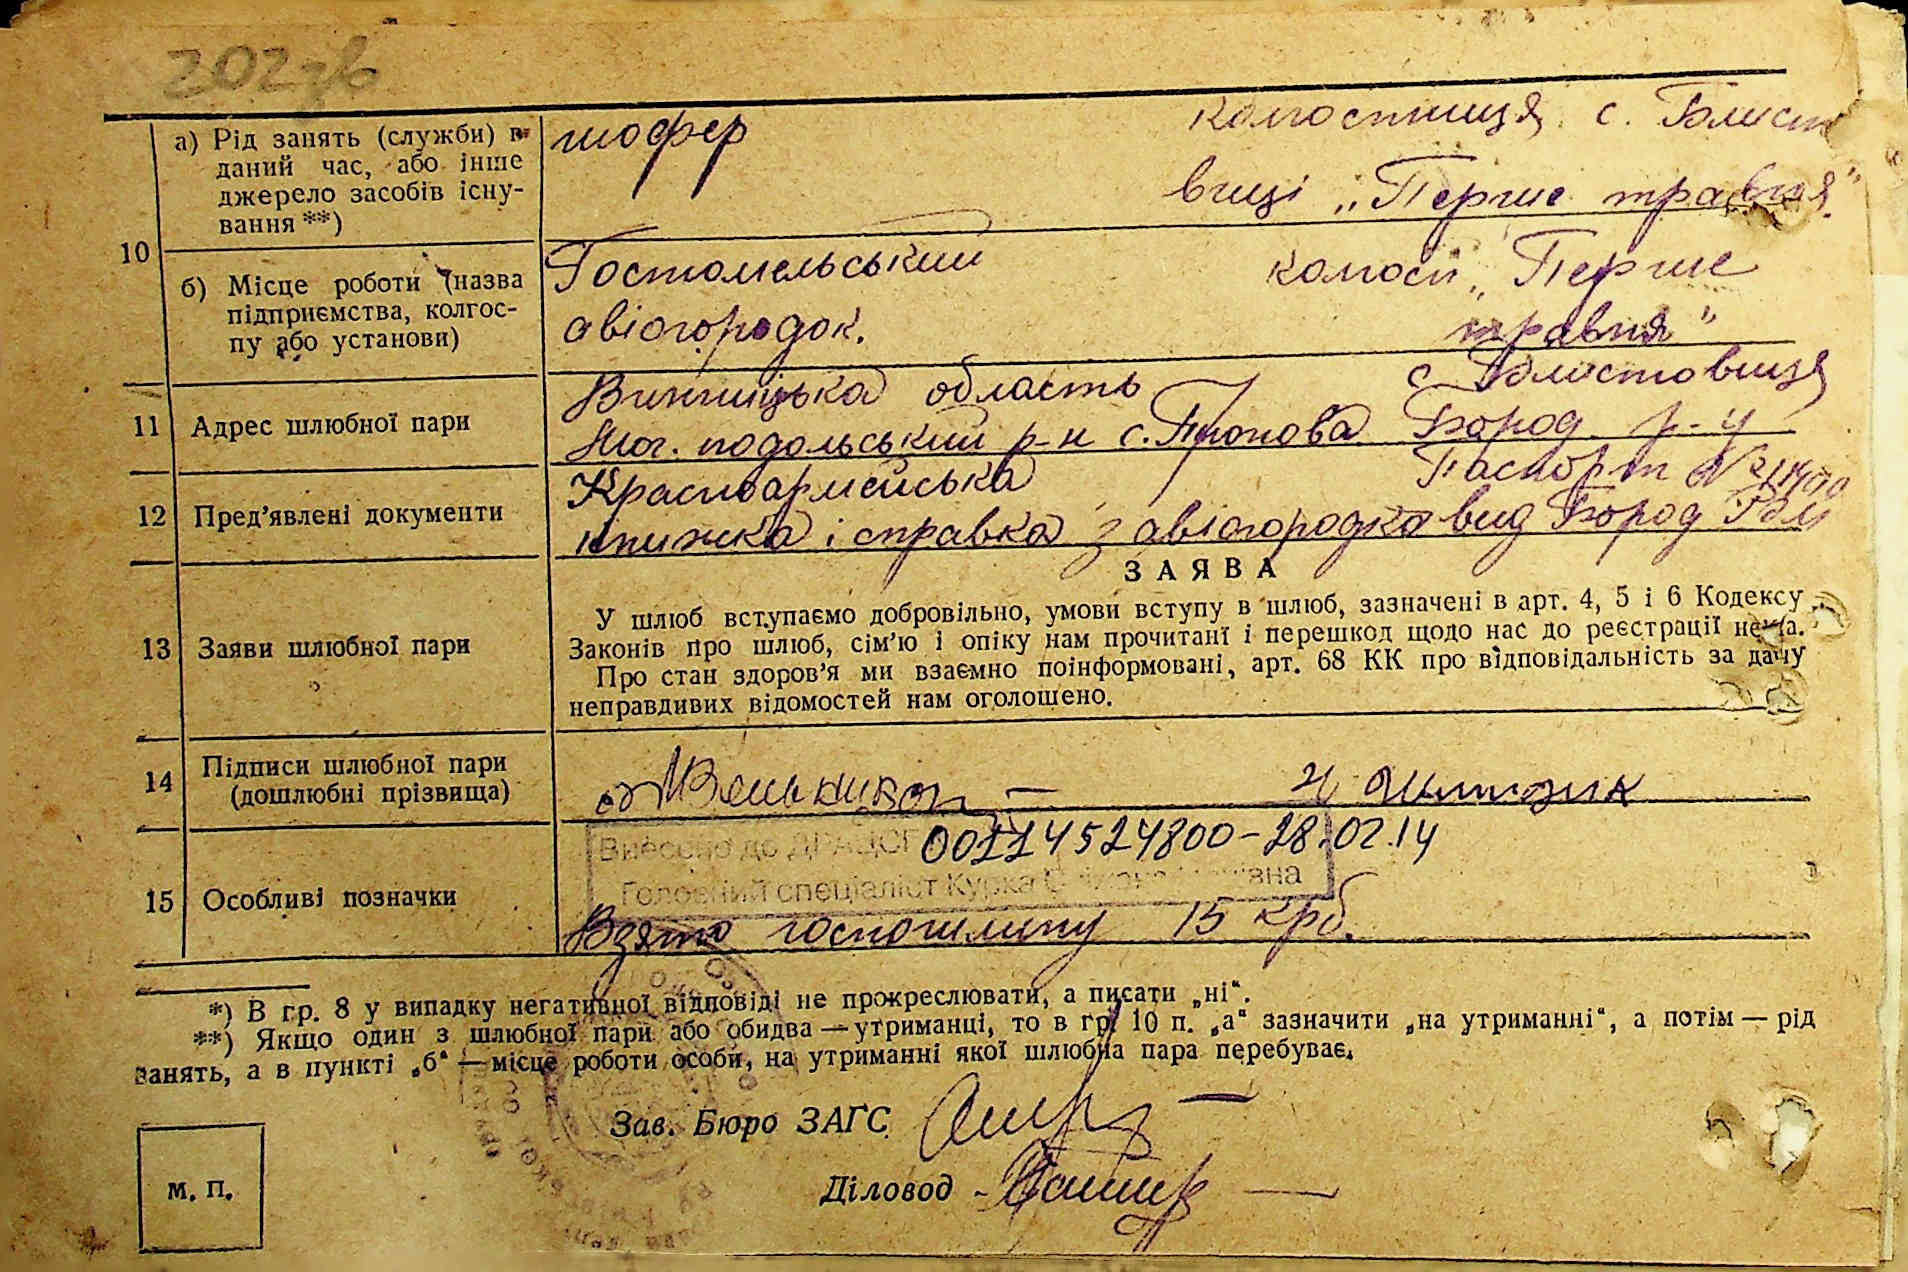 302зв
10
а) Рід занять (служби) в
даний час, або інше
джерело засобів існу-
вання **)
шофер
колгоспниця с. Блист
виці „Перше травня"
б) Місце роботи (назва
підприємства, колгос-
пу або установи)
Гостомельський
авіогородок.
колгосп „Перше
травня"
11 Адрес шлюбної пари
Винницька область
Мог. подольський р-н с.
с. Блистовиця
Бород. р-у
12 Пред'явлені документи
Красноармейська
книжка і справка з авіогородка
Паспорт №
вид Бород
13 Заяви шлюбної пари
ЗАЯВА
У шлюб вступаємо добровільно, умови вступу в шлюб, зазначені в арт. 4, 5 і 6 Кодексу
Законів про шлюб, сім'ю і опіку нам прочитані і перешкод щодо нас до реєстрації нема.
Про стан здоров'я ми взаємно поінформовані, арт. 68 КК про відповідальність за дачу
неправдивих відомостей нам оголошено.
14 Підписи шлюбної пари
(дошлюбні прізвища)
15 Особливі позначки
Внесено до ДРАЦСГ 00114524800-28.02.14
Головний спеціаліст Курка
Взято госпошлину 15 крб.
*) В гр. 8 у випадку негативної відповіді не прокреслювати, а писати „ні“.
**) Якщо один з шлюбної пари або обидва — утриманці, то в гр. 10 п. „а“ зазначити „на утриманні“, а потім — рід
занять, а в пункті „б“ — місце роботи особи, на утриманні якої шлюбна пара перебуває.
Зав. Бюро ЗАГС
Діловод
М. П.